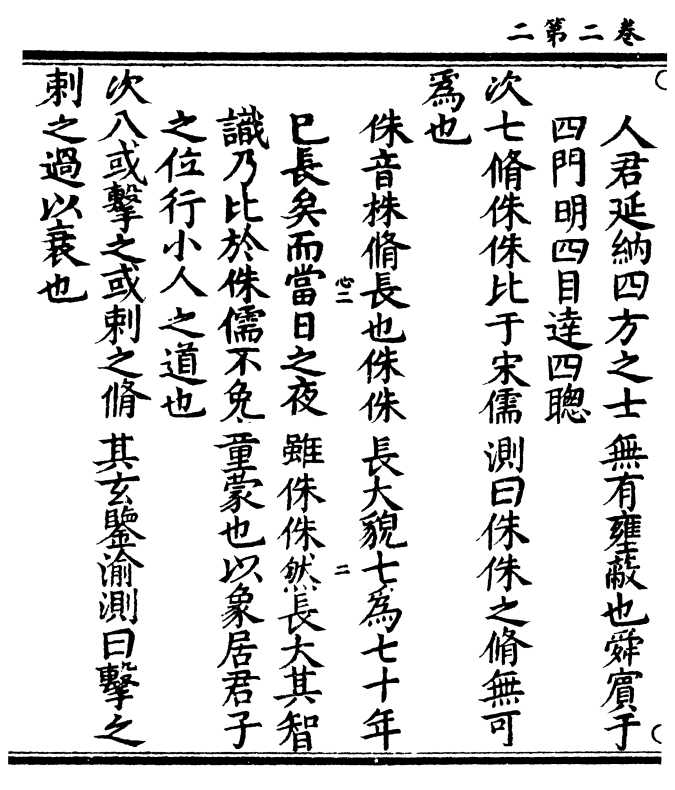 卷二第二
人君延納四方之士無有壅蔽也舜賓于
四門明四目達四聰
次七脩侏侏比于宋儒測曰侏侏之脩無可
爲也
侏音株脩長也侏侏長大貌七爲七十年
心二
二
巳長矣而當日之夜雖侏侏然長大其智
識乃比於侏儒不免童蒙也以象居君子
之位行小人之道也
次八或擊之或刺之脩其玄鑒渝測曰擊之
刺之過以衰也